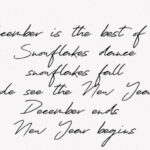 is the best of
Snowflakes dance
snowflakes fall
see the New Year
December ends
New Year begins